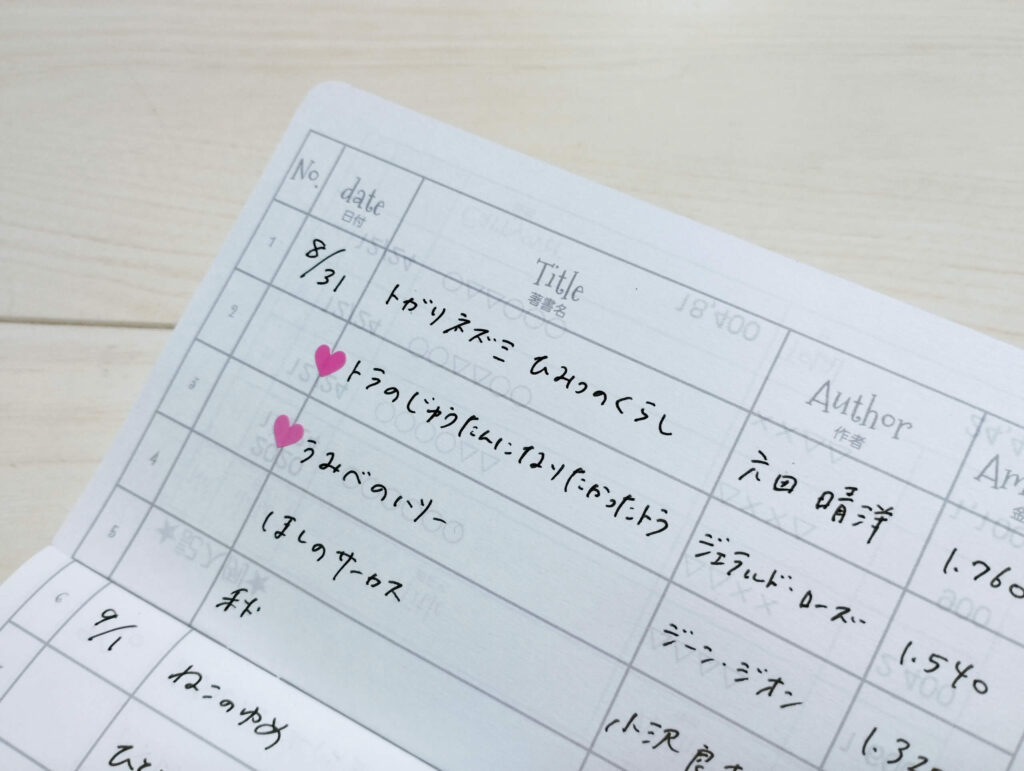 No. date Title Author Am
日付 著書名 作者 金
1 8/31 トガリネズミ ひみつのくらし 六田 晴洋 1.760
2 トラのじゅうたんになりたかったトラ ジェラルド・ローズ 1.540
3 うみべのハリー ジーン・ジオン 1.32
4 ほしのサーカス 小沢 良
5 秋
6 9/1 ねこのゆめ
ひと